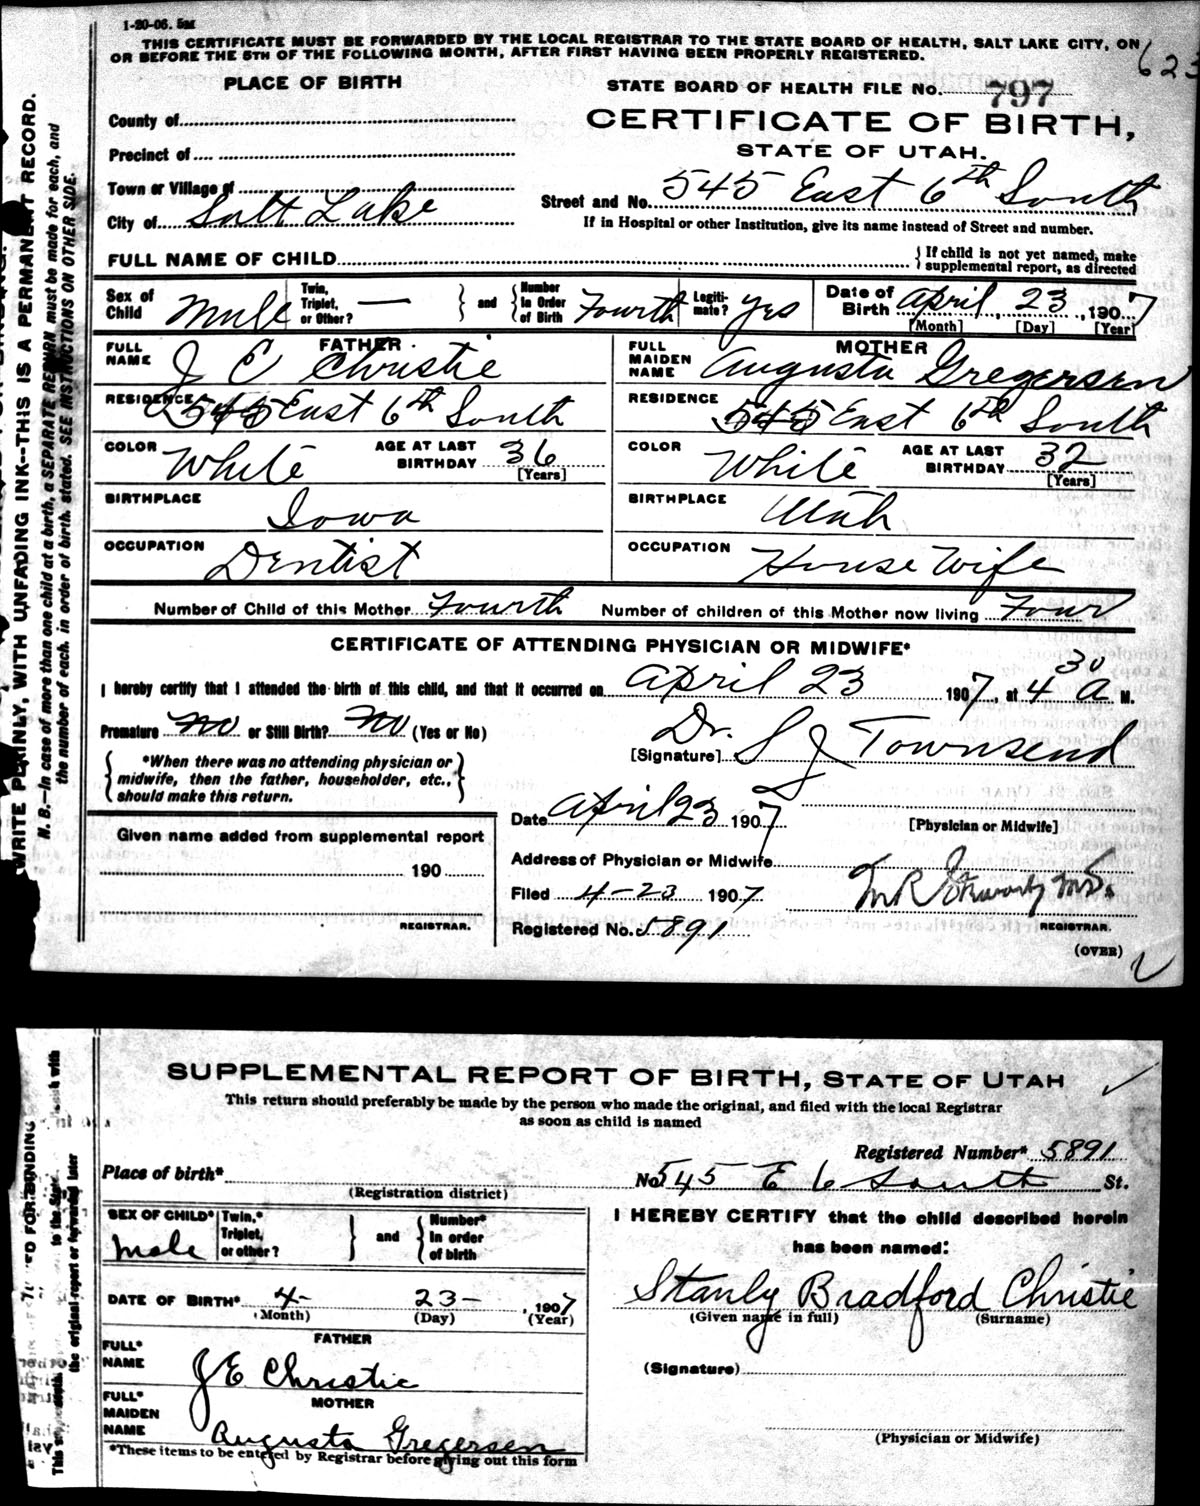 1-20-06. 5M
THIS CERTIFICATE MUST BE FORWARDED BY THE LOCAL REGISTRAR TO THE STATE BOARD OF HEALTH, SALT LAKE CITY, ON
OR BEFORE THE 5TH OF THE FOLLOWING MONTH, AFTER FIRST HAVING BEEN PROPERLY REGISTERED.
623
PLACE OF BIRTH
STATE BOARD OF HEALTH FILE No. 797
County of
CERTIFICATE OF BIRTH,
Precinct of
STATE OF UTAH.
Town or Village of
City of Salt Lake
Street and No. 545 East 6th South
If in Hospital or other Institution, give its name instead of Street and number.
FULL NAME OF CHILD
{If child is not yet named, make supplemental report, as directed
Sex of Child Male
Twin, Triplet, or Other? —
} and { Number in Order of Birth Fourth
Legitimate? yes
Date of Birth April 23, 1907
[Month] [Day] [Year]
FATHER
FULL NAME J E Christie
MOTHER
FULL MAIDEN NAME Augusta Gregersen
RESIDENCE 545 East 6th South
RESIDENCE 545 East 6th South
COLOR White AGE AT LAST BIRTHDAY 36 [Years]
COLOR White AGE AT LAST BIRTHDAY 32 [Years]
BIRTHPLACE Iowa
BIRTHPLACE Utah
OCCUPATION Dentist
OCCUPATION House Wife
Number of Child of this Mother Fourth Number of children of this Mother now living Four
CERTIFICATE OF ATTENDING PHYSICIAN OR MIDWIFE*
I hereby certify that I attended the birth of this child, and that it occurred on April 23 1907, at 4 30 A M.
Premature No or Still Birth? No (Yes or No)
[Signature] Dr. S J Townsend
{ *When there was no attending physician or
midwife, then the father, householder, etc.,
should make this return. }
Date April 23 1907
[Physician or Midwife]
Given name added from supplemental report
190
REGISTRAR.
Address of Physician or Midwife
Filed 4-23 1907
Registered No. 5891
REGISTRAR.
(OVER)
WRITE PLAINLY, WITH UNFADING INK--THIS IS A PERMANENT RECORD.
N. B.--In case of more than one child at a birth, a SEPARATE RETURN must be made for each, and
the number of each, in order of birth, stated. SEE INSTRUCTIONS ON OTHER SIDE.
SUPPLEMENTAL REPORT OF BIRTH, STATE OF UTAH
This return should preferably be made by the person who made the original, and filed with the local Registrar
as soon as child is named
Registered Number* 5891
Place of birth*
(Registration district)
No. 545 E 6 South St.
SEX OF CHILD* Male
Twin,* Triplet, or other?
} and { Number* in order of birth
I HEREBY CERTIFY that the child described herein
has been named:
DATE OF BIRTH* 4- 23- , 1907
(Month) (Day) (Year)
Stanly Bradford Christie
(Given name in full) (Surname)
FATHER
FULL* NAME J E Christie
(Signature)
MOTHER
FULL* MAIDEN NAME Augusta Gregersen
(Physician or Midwife)
*These items to be entered by Registrar before giving out this form
the original report or forwarded later